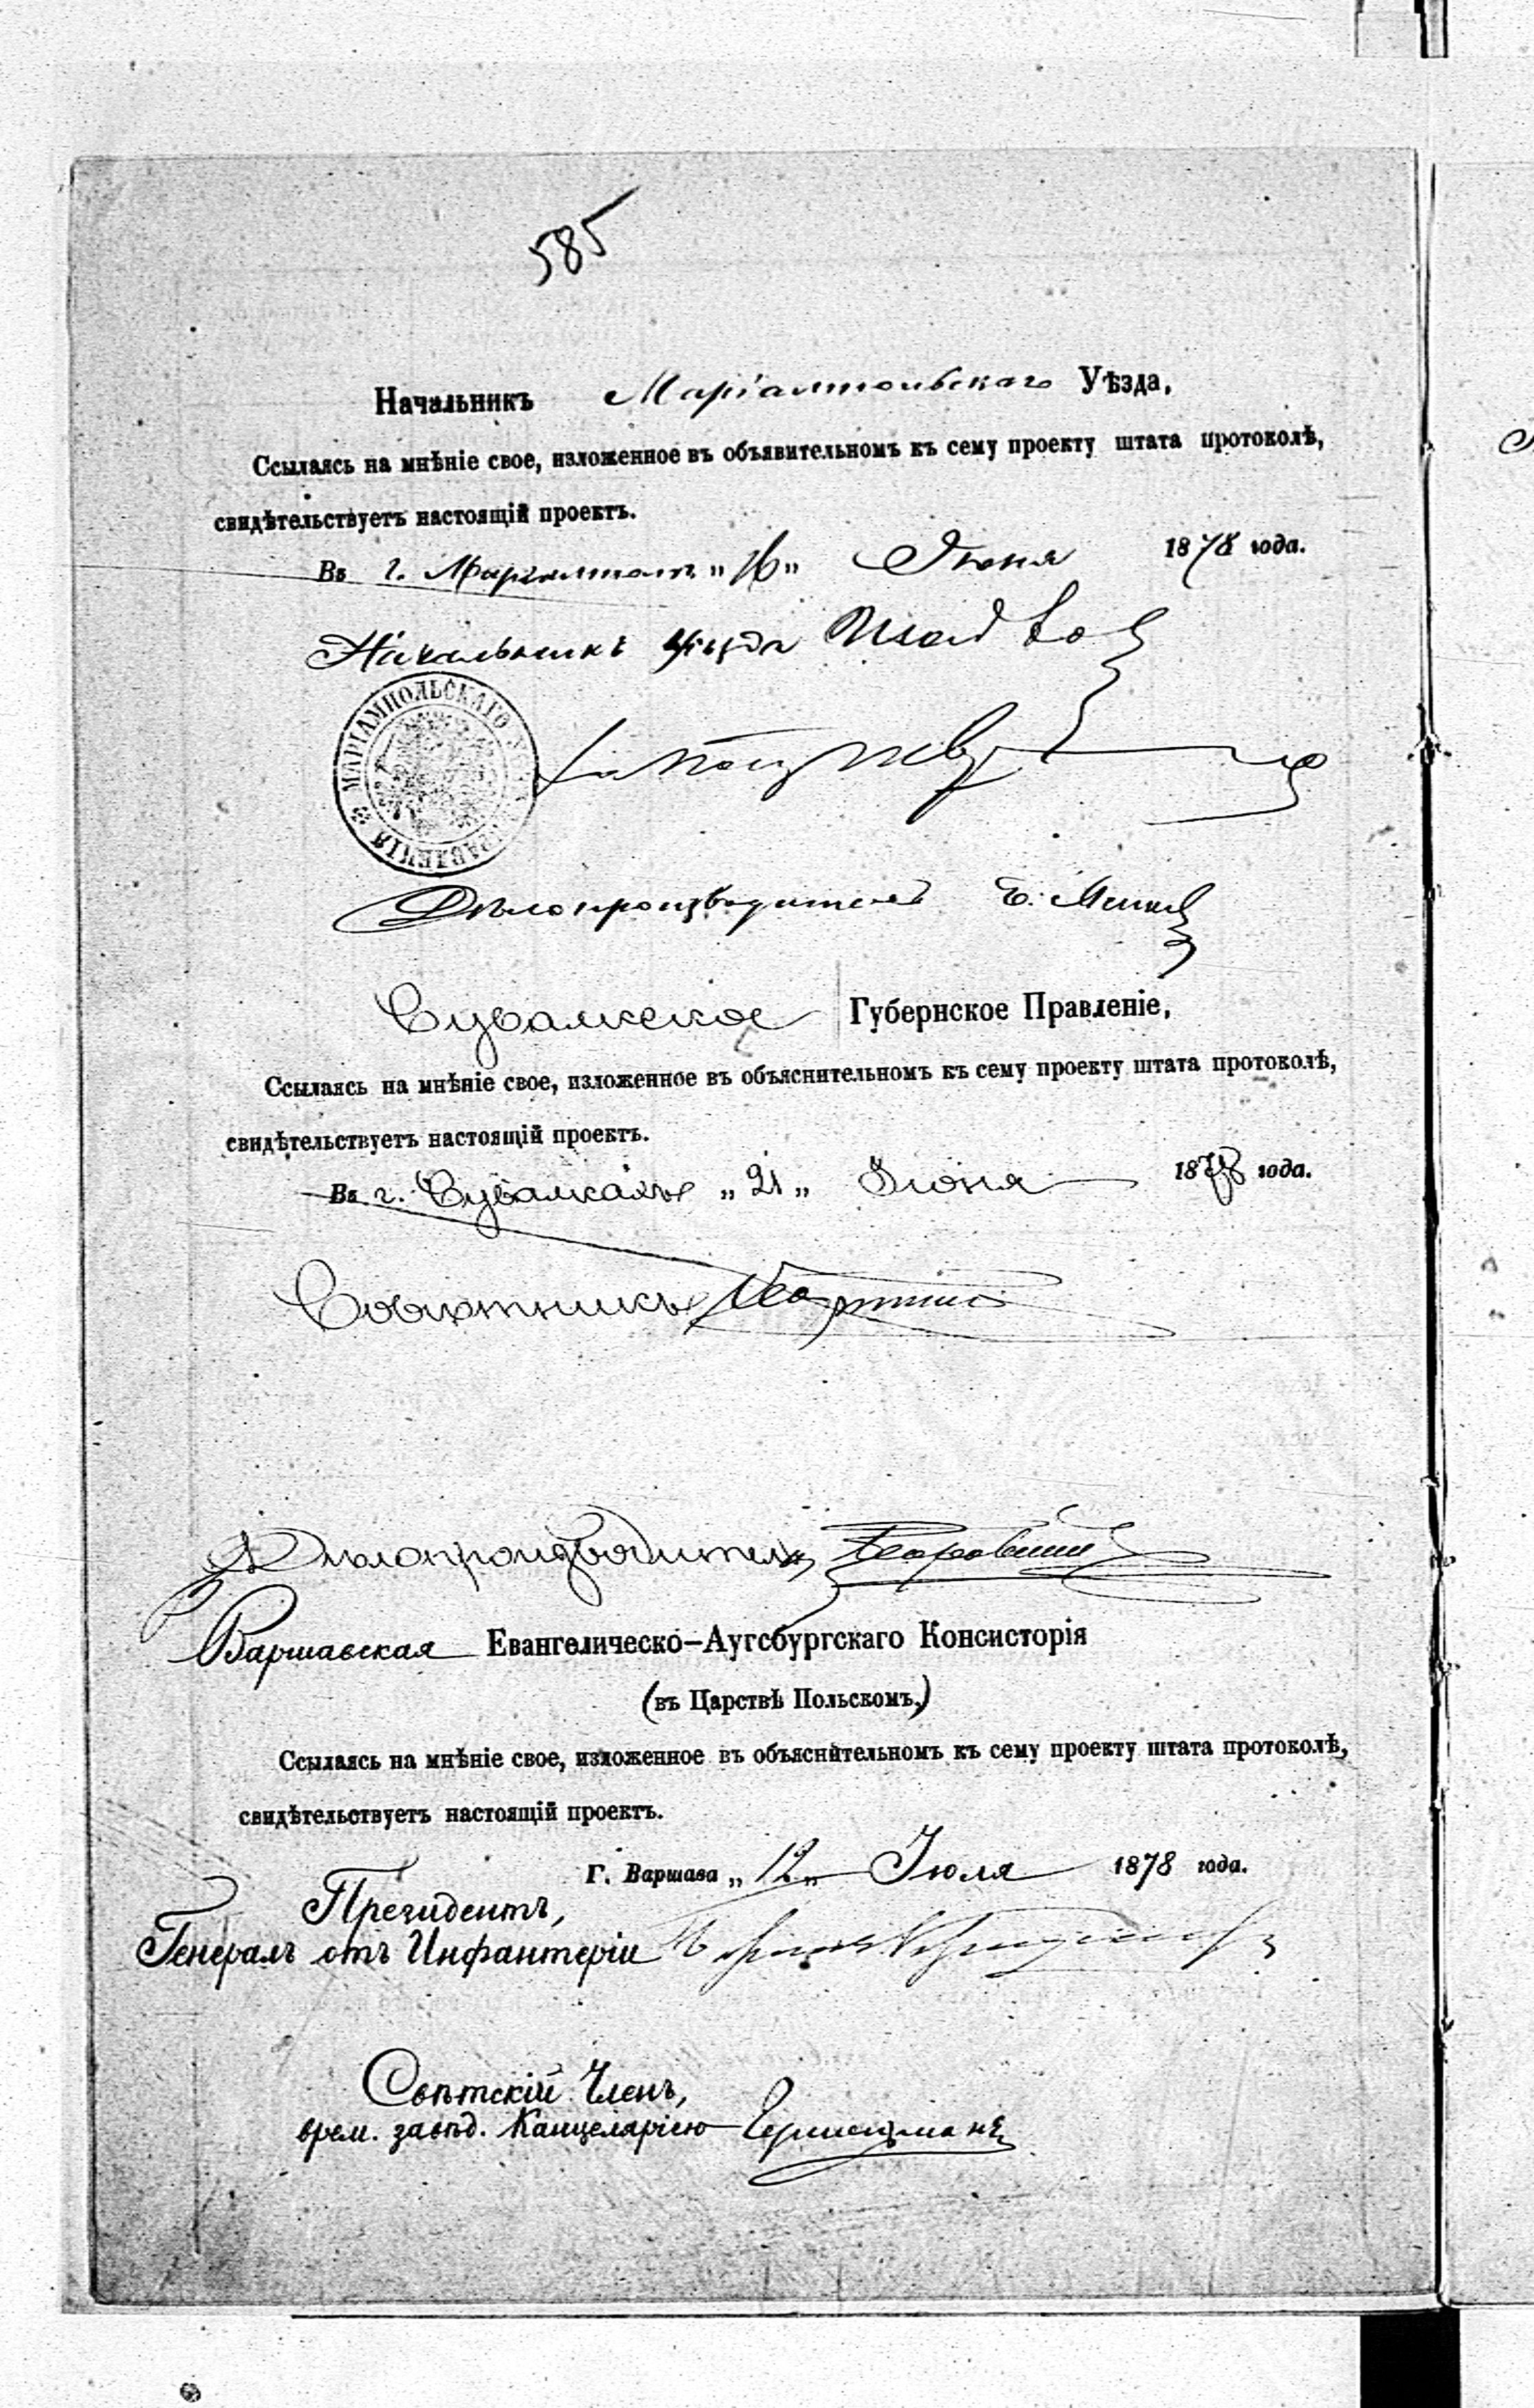 585
Начальникъ Маріампольскаго Уѣзда,
Ссылаясь на мнѣніе свое, изложенное въ объявительномъ къ сему проекту штата протоколѣ,
свидѣтельствуетъ настоящій проектъ.
Въ г. Маріамполѣ „16„ Іюня 1878 года.
Начальникъ уѣзда
МАРІАМПОЛЬСКАГО УѢЗД. УПРАВЛЕНІЯ
Дѣлопроизводитель
Сувалкское Губернское Правленіе,
Ссылаясь на мнѣніе свое, изложенное въ объяснительномъ къ сему проекту штата протоколѣ,
свидѣтельствуетъ настоящій проектъ.
Въ г. Сувалкахъ „21„ Іюня 1878 года.
Совѣтникъ
Дѣлопроизводитель
Варшавская Евангелическо-Аугсбургскаго Консисторія
(въ Царствѣ Польскомъ,)
Ссылаясь на мнѣніе свое, изложенное въ объяснительномъ къ сему проекту штата протоколѣ,
свидѣтельствуетъ настоящій проектъ.
Г. Варшава „12„ Іюля 1878 года.
Президентъ,
Генералъ отъ Инфантеріи
Свѣтскій Членъ,
врем. завѣд. Канцеляріею